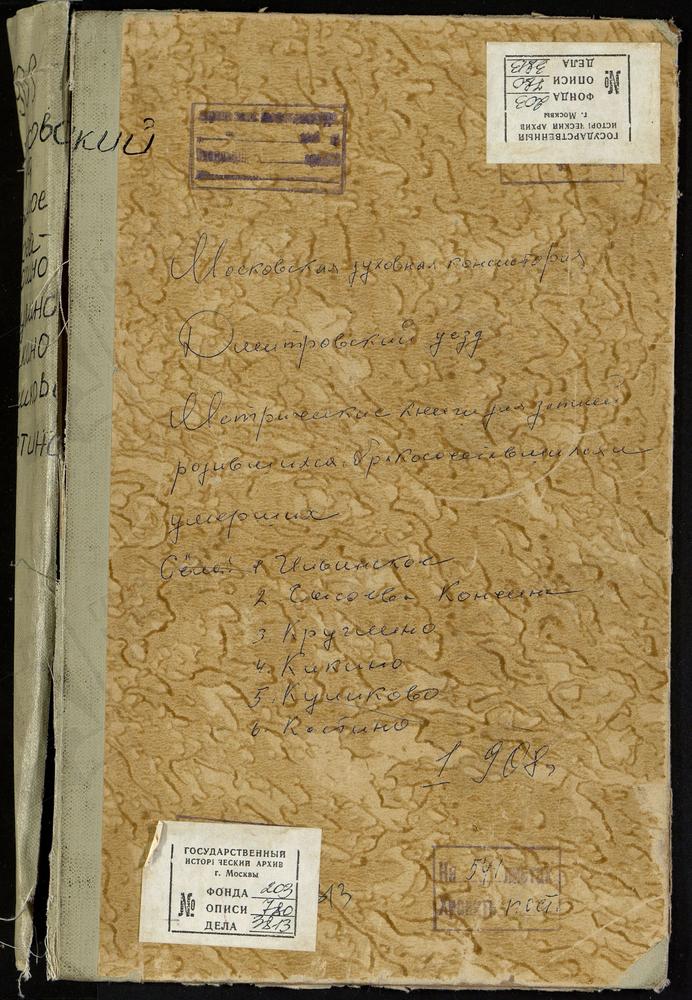 ГОСУДАРСТВЕННЫЙ
ИСТОРИЧЕСКИЙ АРХИВ
г. Москвы
№
ФОНДА 203
ОПИСИ 780
ДЕЛА 3813
Московская духовная консистория
Дмитровский уезд
Метрические книги для записей
родившихся бракосочетавшихся и
умерших
Сёла: 1 Ильинское
2 Сысоева Кончина
3 Круглино
4. Кикино
5. Куликово
6. Костино
1908 г.
ГОСУДАРСТВЕННЫЙ
ИСТОРИЧЕСКИЙ АРХИВ
г. Москвы
№
ФОНДА 203
ОПИСИ 780
ДЕЛА 3813
На 541 листах
Хранить пост.